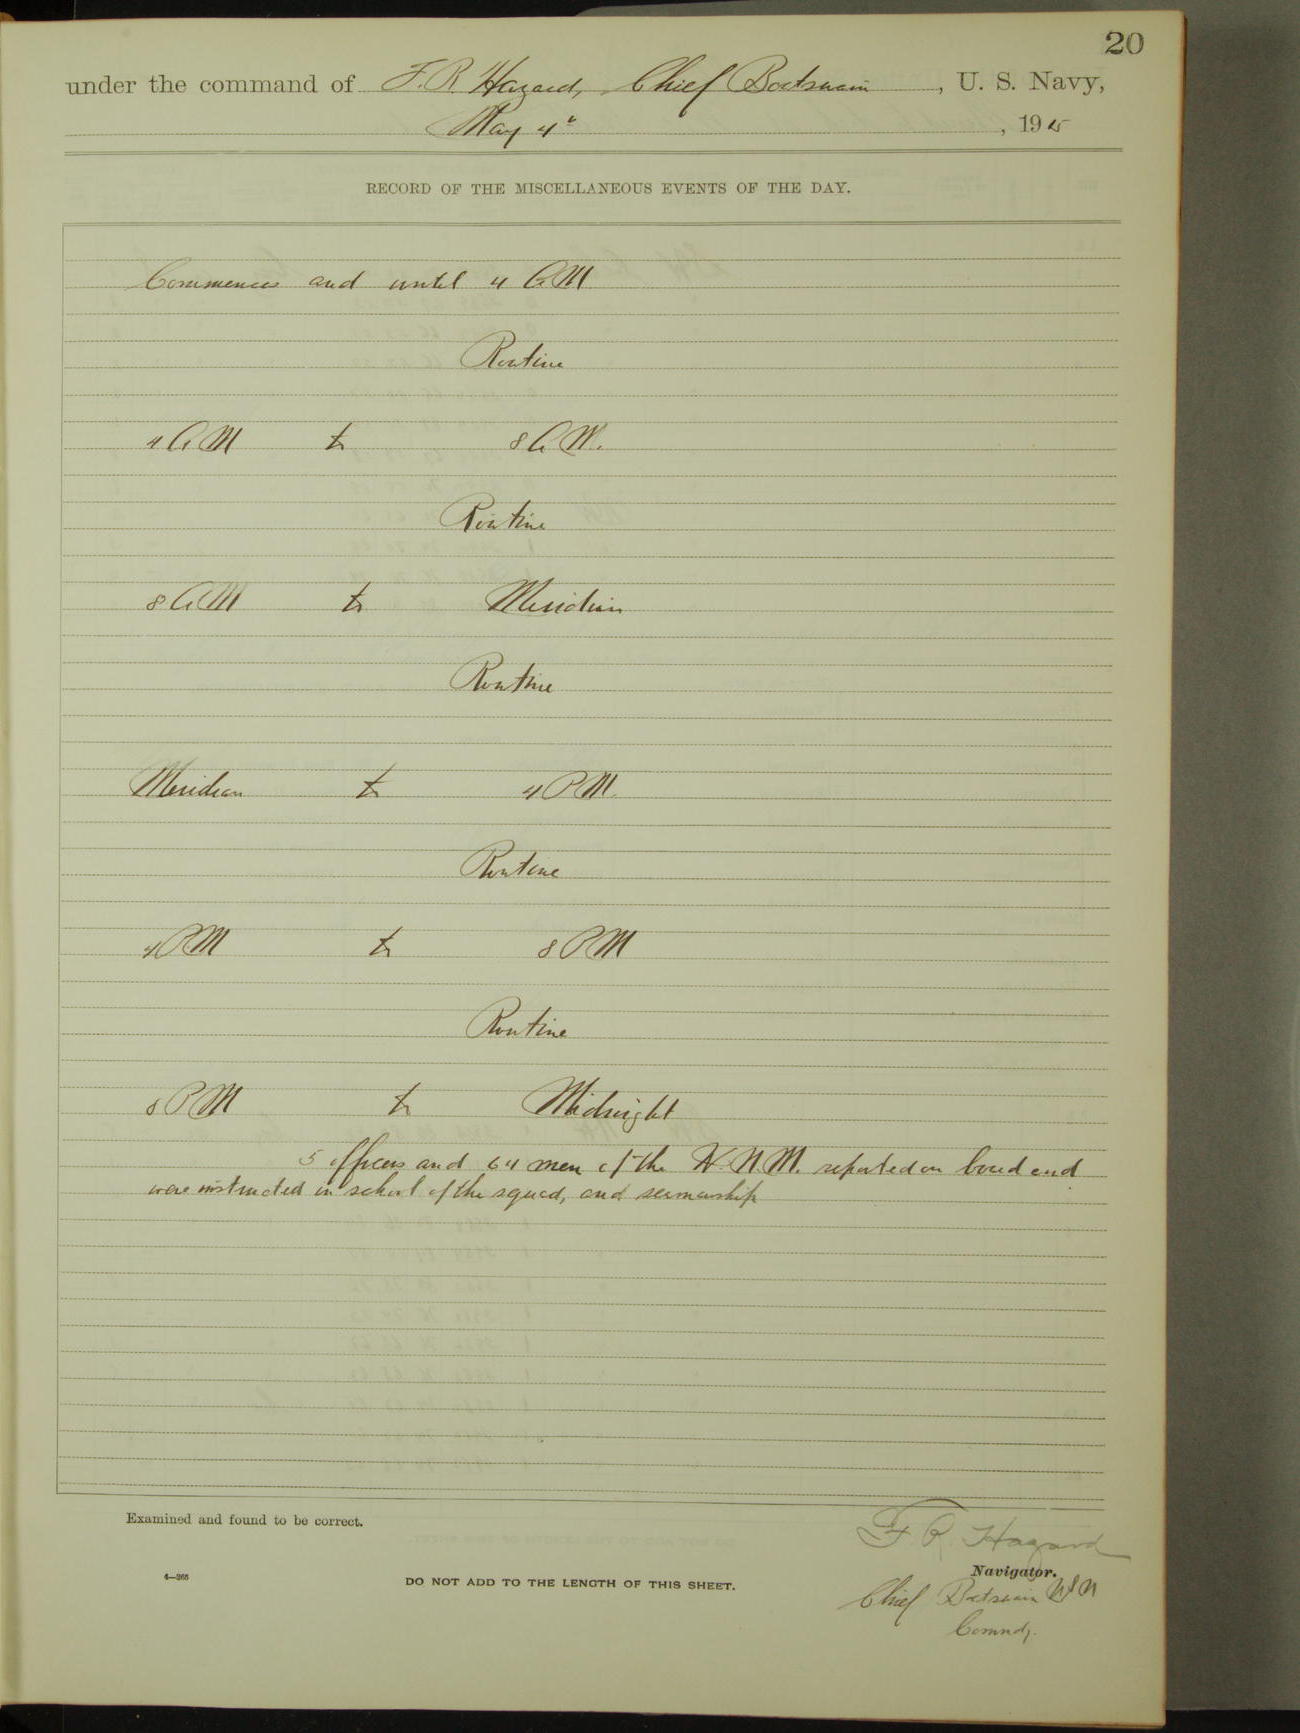 20
under the command of F. R. Hazard, Chief Boatswain, U. S. Navy,
May 4", 1915
RECORD OF THE MISCELLANEOUS EVENTS OF THE DAY.
Commences and until 4 AM
Routine
4 AM to 8 AM.
Routine
8 AM to Meridian
Routine
Meridian to 4 PM.
Routine
4 PM to 8 PM
Routine
8 PM to Midnight
5 officers and 64 men of the N.M. reported on board and
were instructed in school of the squad, and seamanship
Examined and found to be correct.
F. R. Hazard
Navigator.
4—265
DO NOT ADD TO THE LENGTH OF THIS SHEET.
Chief Boatswain USN
Comndg.